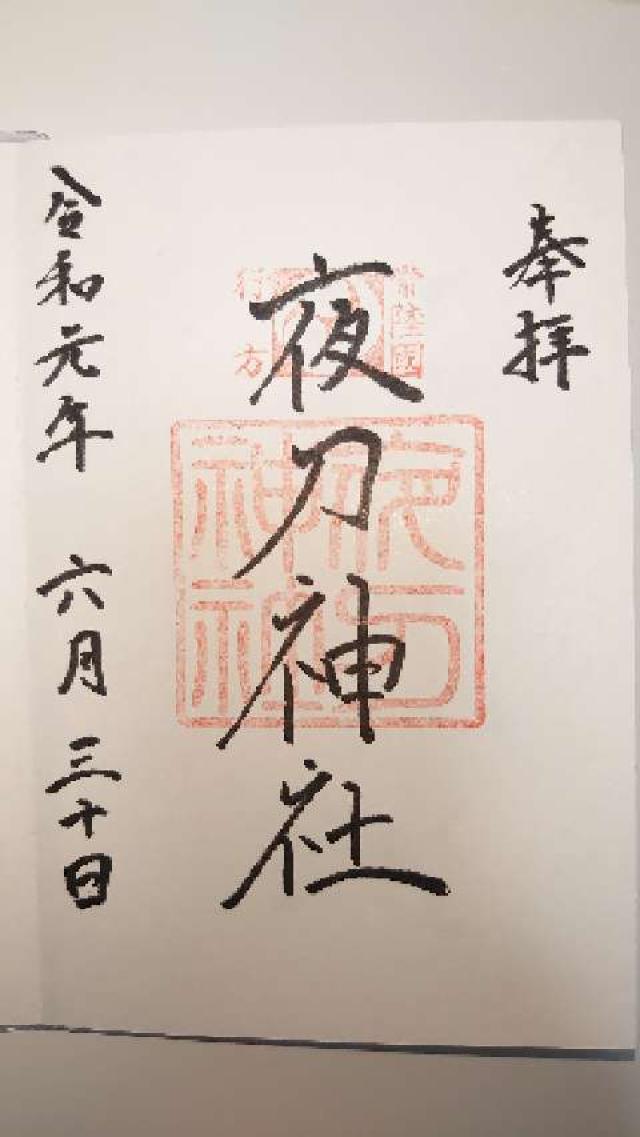 奉拝
常陸國
行方
夜刀神社
夜刀神社
令和元年 六月三十日